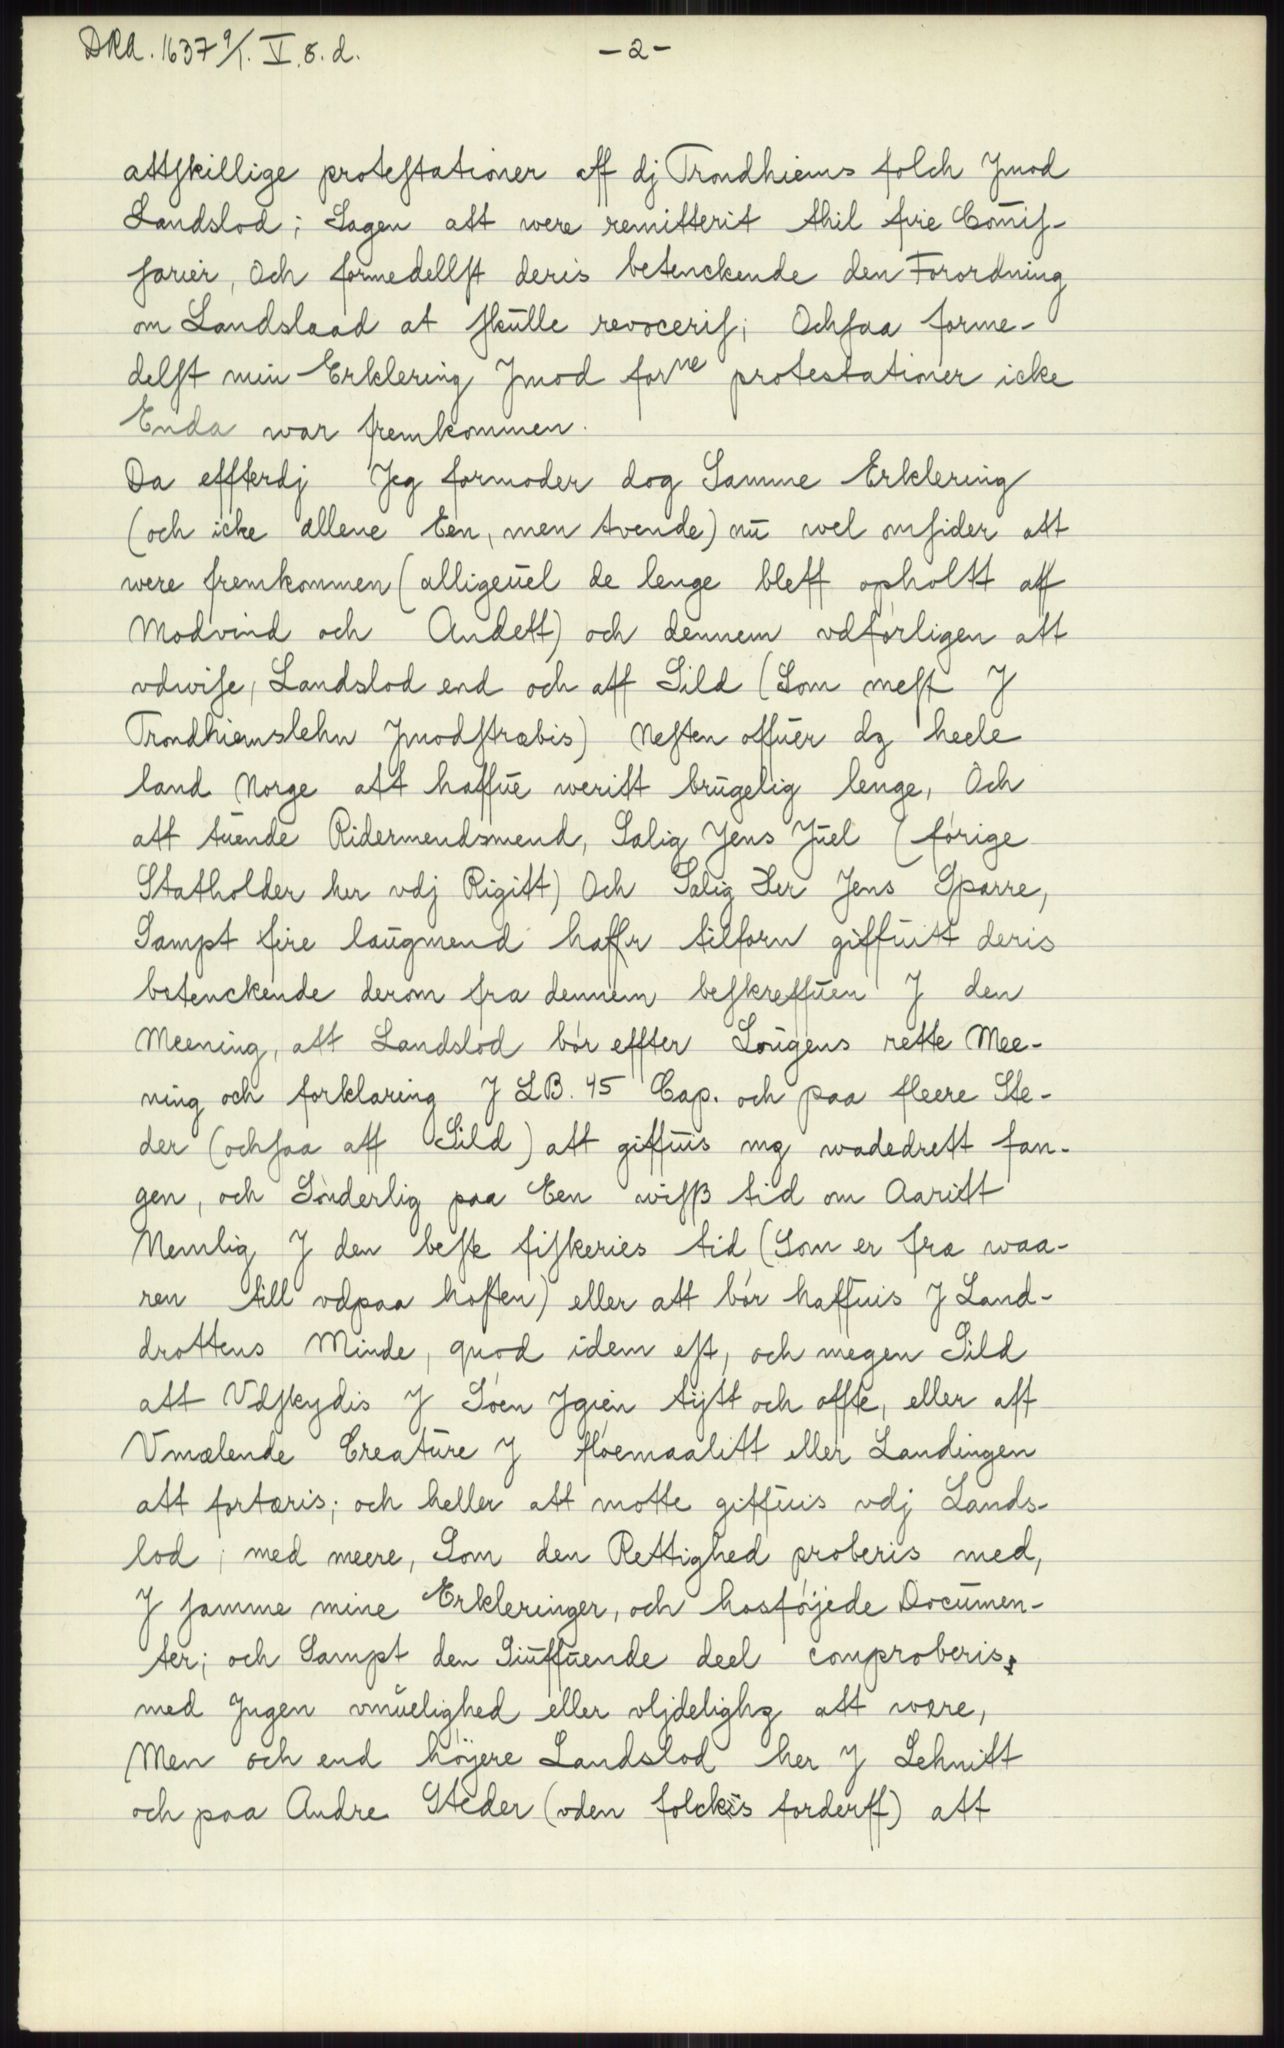 DRA. 1637 9/1. V. 8. d.
-2-
attskillige protestationer aff dj Trondhiems folch Jmod
Landslod; Sagen att were remitterit thil fire Com̅is-
sarier, Och formedellst deris betenckende den Forordning
om Landslaad at skulle revoceris; Ochsaa forme-
delst min Erklering Jmod forne protestationer icke
Enda war fremkommen.
Da effterdj Jeg formoder dog Samme Erklering
(och icke allene Een, men tvende) nu wel omsider att
were fremkommen (alligeuel de lenge bleff opholtt aff
Modvind och Andett) och dennem vdførligen att
vdwise, Landslod end och aff Sild (Som mest J
Trondhiemslehn Jmodstræbis) Nesten offuer dz heele
land Norge att haffue weritt brugelig lenge, Och
att tuende Ridermendsmend, Salig Jens Juel (førige
Statholder her vdj Rigitt) Och Salig Her Jens Sparre,
Sampt fire laugmend haffr tilforn giffuitt deris
betenckende derom fra dennem beskreffuen J den
Meening, att Landslod bør effter Lougens rette Mee-
ning och forklaring J LB. 45 Cap. och paa fleere Ste-
der (ochsaa aff Sild) att giffuis mz wadedrett fan-
gen, och Sønderlig paa Een wisß tid om Aaritt
Nemlig J den beste fiskeries tid (Som er fra waa-
ren till vdpaa høsten) eller att bør haffuis J Land-
drottens Minde, quod idem est, och megen Sild
att Vdskydis J Søen Jgien tijtt och offte, eller aff
Vmælende Creature J fløemaalitt eller Landingen
att fortæris; och heller att motte giffuis vdj Lands-
lod; med meere, Som den Rettighed proberis med,
J samme mine Erkleringer, och hosføjede Documen-
ter; och Sampt den Siuffuende deel comproberis
med Jngen vmuelighed eller vljdelighz att wære,
Men och end højere Landslod her J Lehnitt
och paa Andre Steder (vden folckis forderff) att